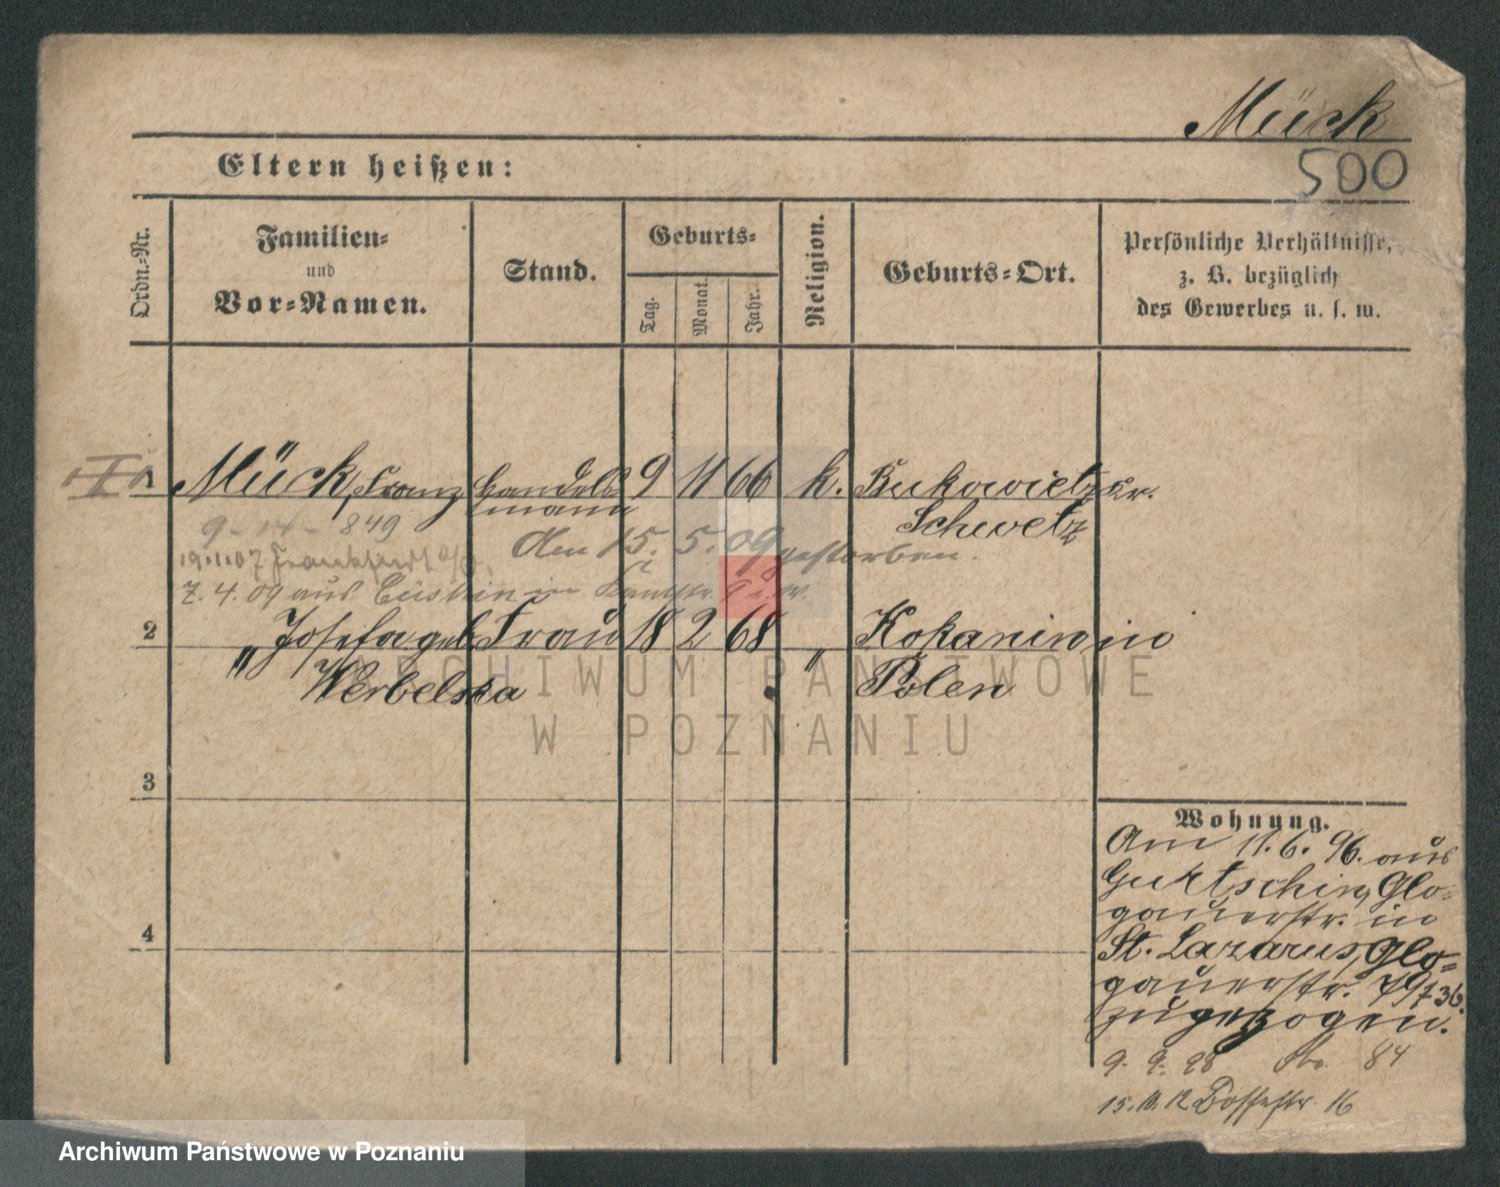 Mück
500
Eltern heißen:
Ordn.-Nr.
Familien-
und
Vor-Namen.
Stand.
Geburts-
Tag.
Monat.
Jahr.
Religion.
Geburts-Ort.
Persönliche Verhältnisse,
z. B. bezüglich
des Gewerbes u. s. w.
1 Mück, Franz Handels- 9 11 66 k. Bukowietz Kr.
mann Schwetz
849
Am 15. 5. 09 gestorben.
19.1.07 Frankfurt a/O.
7. 4. 09 aus in
2 " Josefa geb. Frau 18 2 68 " Kokanin in
Werbelska Polen
3
4
Wohnung.
Am 11. 6. 96. aus
Gurtschin, Glo-
gauerstr. in
St. Lazarus, Glo-
gauerstr. 79/736.
zugezogen.
9. 9. 98 No. 84
15. 10. 12 Posse­str. 16
ARCHIWUM PAŃSTWOWE
W POZNANIU
Archiwum Państwowe w Poznaniu